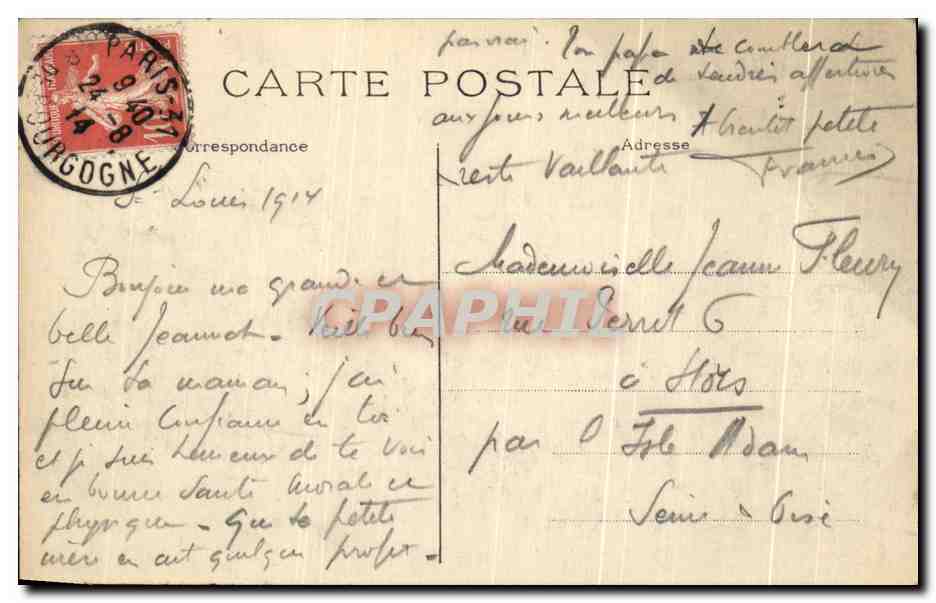 PARIS-31
9 40
24 -8
14
BOURGOGNE
CARTE POSTALE
Correspondance
Adresse
St Louis 1914
Bonjour ma grande et
belle Jeannot - Veille bien
sur ta maman, j'ai
pleine confiance en toi
et je suis heureux de te voir
en bonne santé morale et
physique - Que ta petite
mère en ait quelque profit -
pas vrai. Ton papa te comblera
de tendres affections
aux jours meilleurs A bientôt petite
reste Vaillante Francis
Mademoiselle Jeanne Fleury
rue 6
à
par Isle Adam
Seine & Oise
CPAPHIL